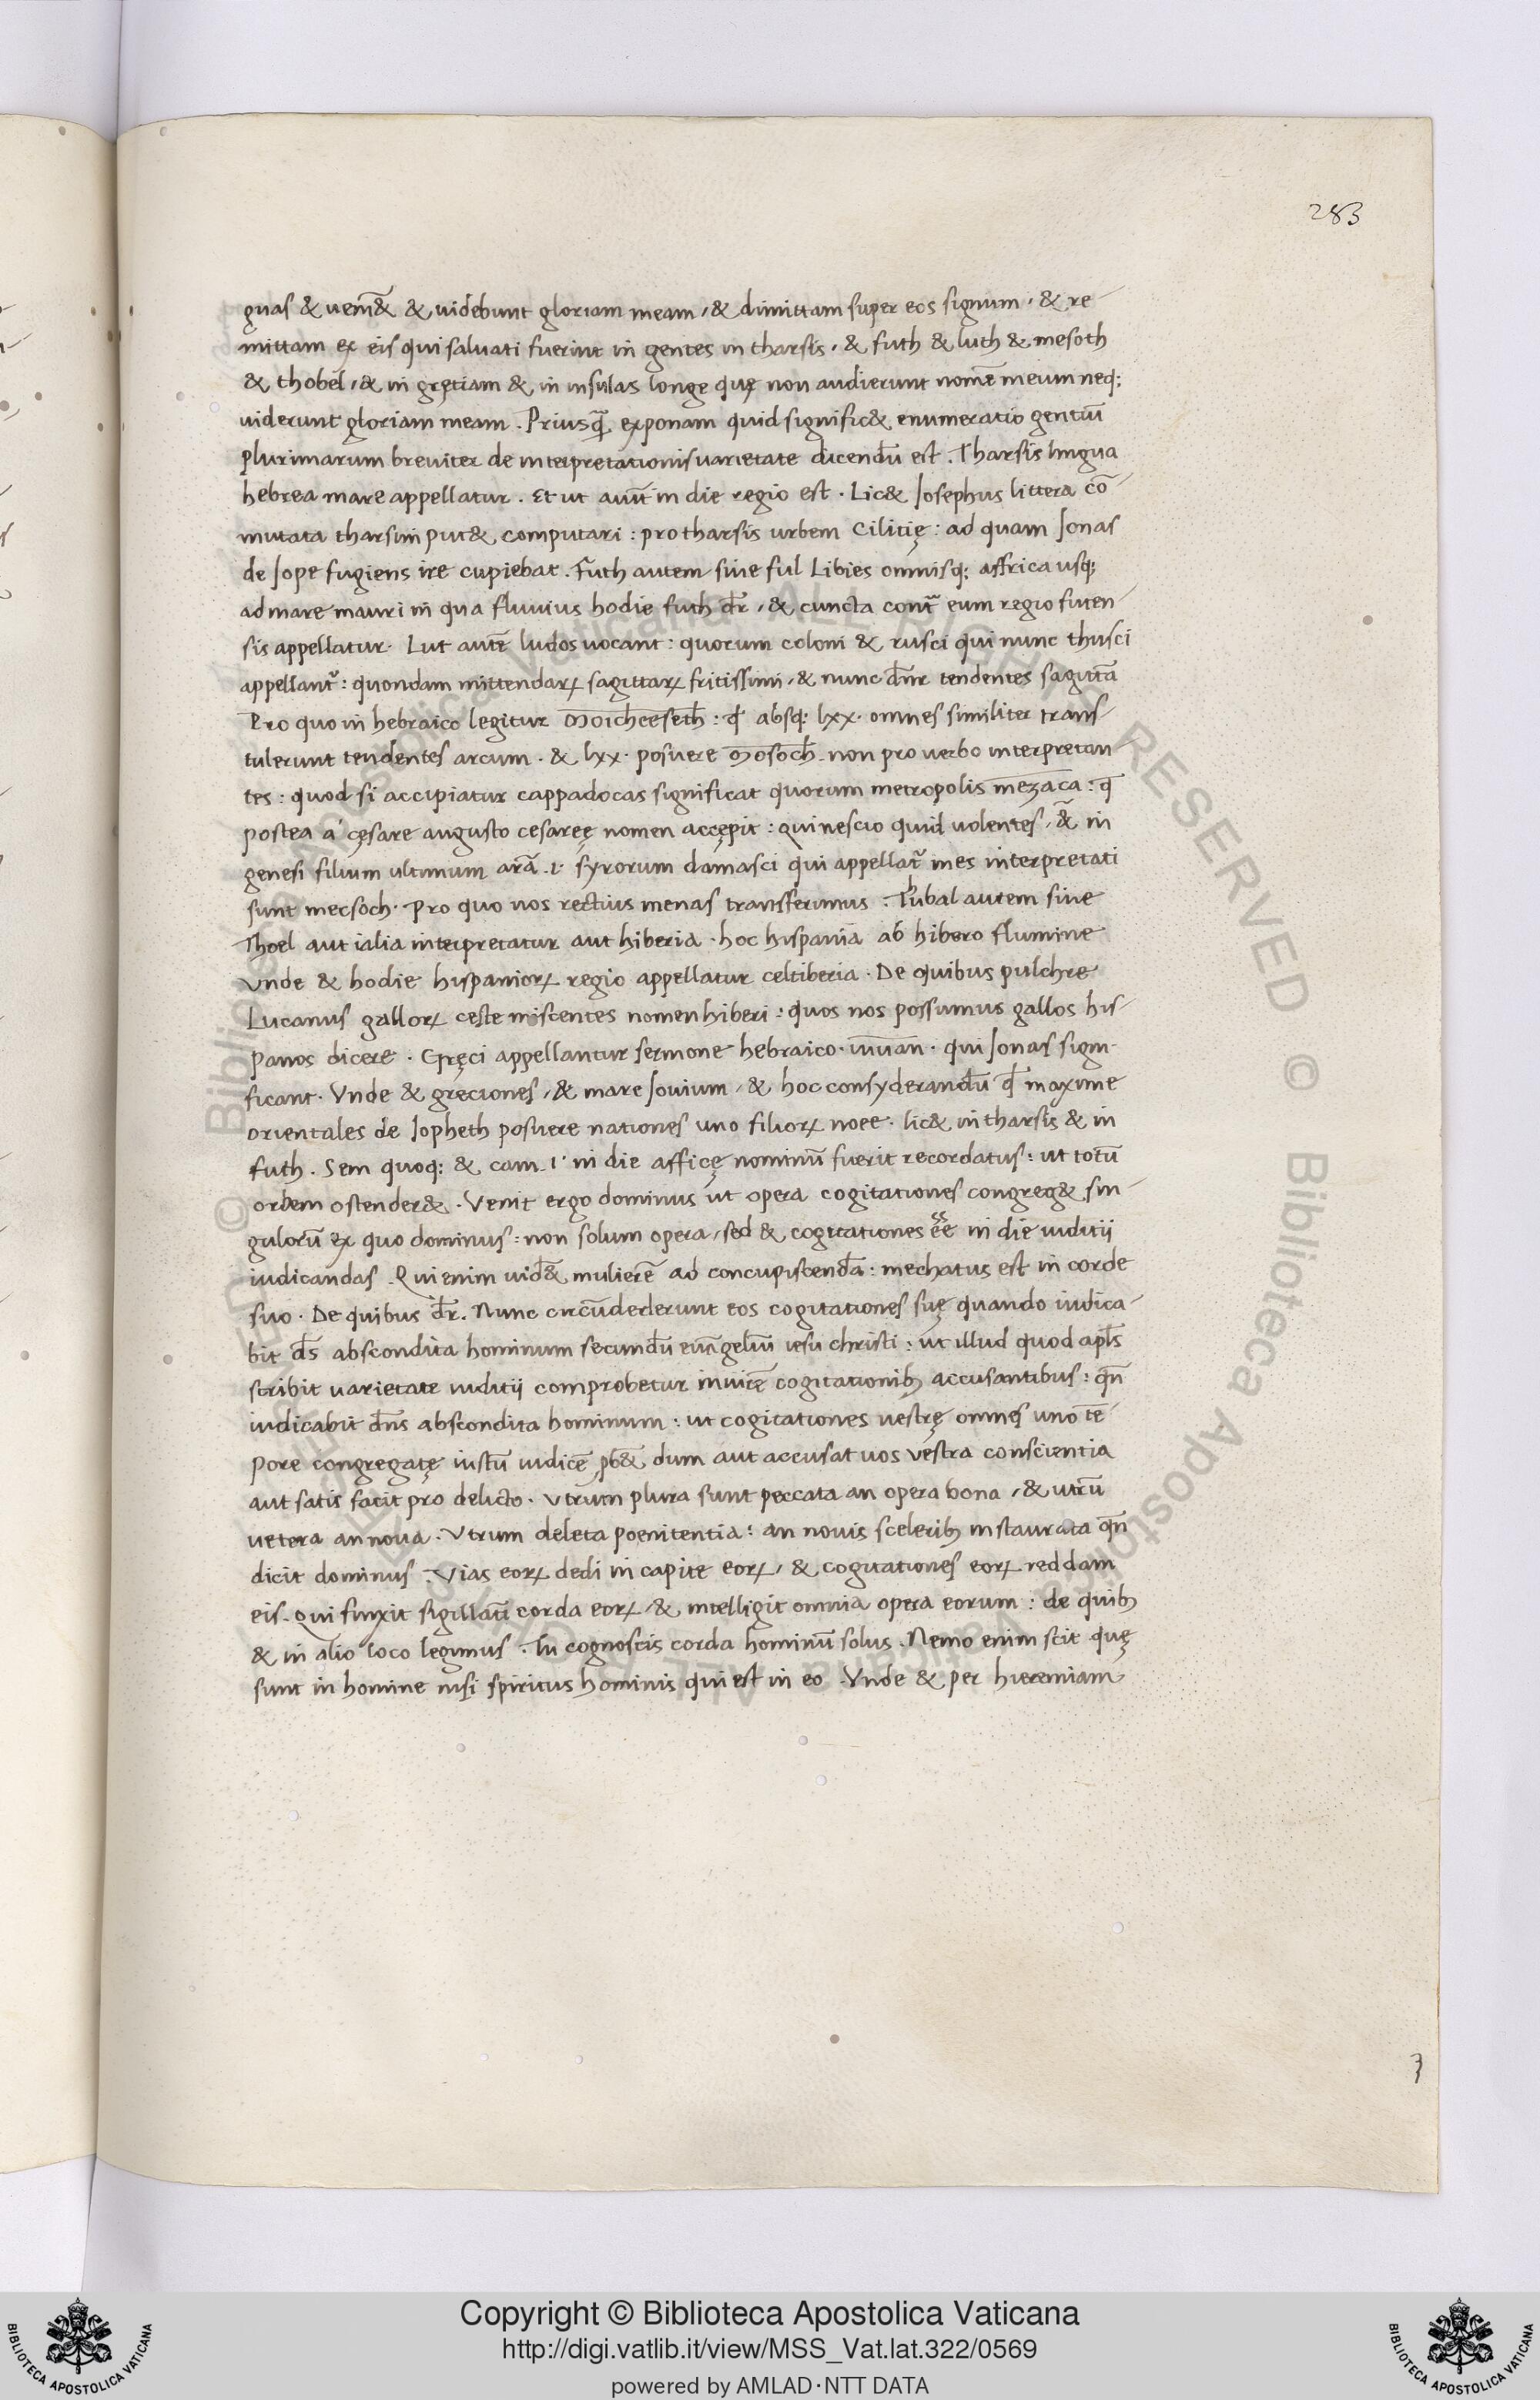 283
guas & uem̄& & uidebunt gloriam meam, & dimittam super eos signum, & re-
mittam ex eis qui saluati fuerint in gentes in tharsis, & futh & luth & mesoth
& thobel, & in gręciam & in insulas longe quę non audierunt nomē meum neq;
uiderunt gloriam meam. Priusq̄ exponam quid signific& enumeratio gentiū
plurimarum breuiter de interpretationis uarietate dicendū est. Tharsis lingua
hebrea mare appellatur. Et ut aiūt in die regio est. Lic& Josephus littera cō-
mutata tharsim put& computari: pro tharsis urbem Cilicię: ad quam Jonas
de Jope fugiens ire cupiebat. Futh autem siue ful Libies omnisq; affrica usq;
ad mare mauri in qua fluuius hodie futh dr̄, & cuncta contr̄ eum regio futen-
sis appellatur. Lut autē ludos uocant: quorum coloni & rusci qui nunc thusci
appellant᷑: quondam mittendaꝝ sagittaꝝ fritissimi, & nunc dn̄r tendentes sagittā
Pro quo in hebraico legitur moicheeseth: qd̄ absq; lxx. omnes similiter trans-
tulerunt tendentes arcum. & lxx. posuere mosoch. non pro uerbo interpretan-
tes: quod si accipiatur cappadocas significat quorum metropolis mezaca: q̄
postea a' cęsare augusto cesareę nomen accępit: qui nescio quid uolentes, &̄ in
genesi filium ultimum arā .i. syrorum damasci qui appellat᷑ mes interpretati
sunt mecsoch. Pro quo nos rectius menas transferimus. Tubal autem siue
Thoel aut ialia interpretatur aut hiberia. hoc hispania ab hibero flumine
Vnde & hodie hispanioꝝ regio appellatur celtiberia. De quibus pulchre
Lucanus galloꝝ ceste miscentes nomen hiberi: quos nos possumus gallos his-
panos dicere. Gręci appellantur sermone hebraico. iuuan. qui Jonas signi-
ficant. Vnde & gręciones, & mare Jouium, & hoc consyderandū qd̄ maxime
orientales de Jopheth posuere nationes uno filioꝝ noee. lic& in tharsis & in
futh. Sem quoq; & cam .i. in die afficę nominū fuerit recordatus: ut totū
orbem ostender&. Venit ergo dominus ut opera cogitationes congreg& sin-
gulorū ex quo dominus: non solum opera, sed & cogitationes eē in die iuditij
iudicandas. Qui enim uid& mulierē ad concupiscendā: mechatus est in corde
suo. De quibus dr̄. Nunc circūdederunt eos cogitationes suę quando iudica-
bit ds̄ abscondita hominum secundū euāgeliū iesu christi: ut illud quod apl̄s
scribit uarietate iuditij comprobetur inuicē cogitationib; accusantibus: qn̄
iudicabit dn̄s abscondita hominum: ut cogitationes uestrę omnes uno tē-
pore congregatę iustū iudicē ꝓb& dum aut accusat uos uestra conscientia
aut satis facit pro delicto. Vtrum plura sunt peccata an opera bona, & utrū
uetera an noua. Vtrum deleta poenitentia: an nouis scelerib; instaurata qn̄
dicit dominus. Vias eoꝝ dedi in capite eoꝝ, & cogitationes eoꝝ reddam
eis. Qui finxit sigillatī corda eoꝝ, & intelligit omnia opera eorum: de quib;
& in alio loco legimus. Tu cognoscis corda hominū solus. Nemo enim scit quę
sunt in homine nisi spiritus hominis qui est in eo. Vnde & per hieremiam
Copyright © Biblioteca Apostolica Vaticana
http://digi.vatlib.it/view/MSS_Vat.lat.322/0569
powered by AMLAD·NTT DATA
BIBLIOTECA APOSTOLICA VATICANA
BIBLIOTECA APOSTOLICA VATICANA